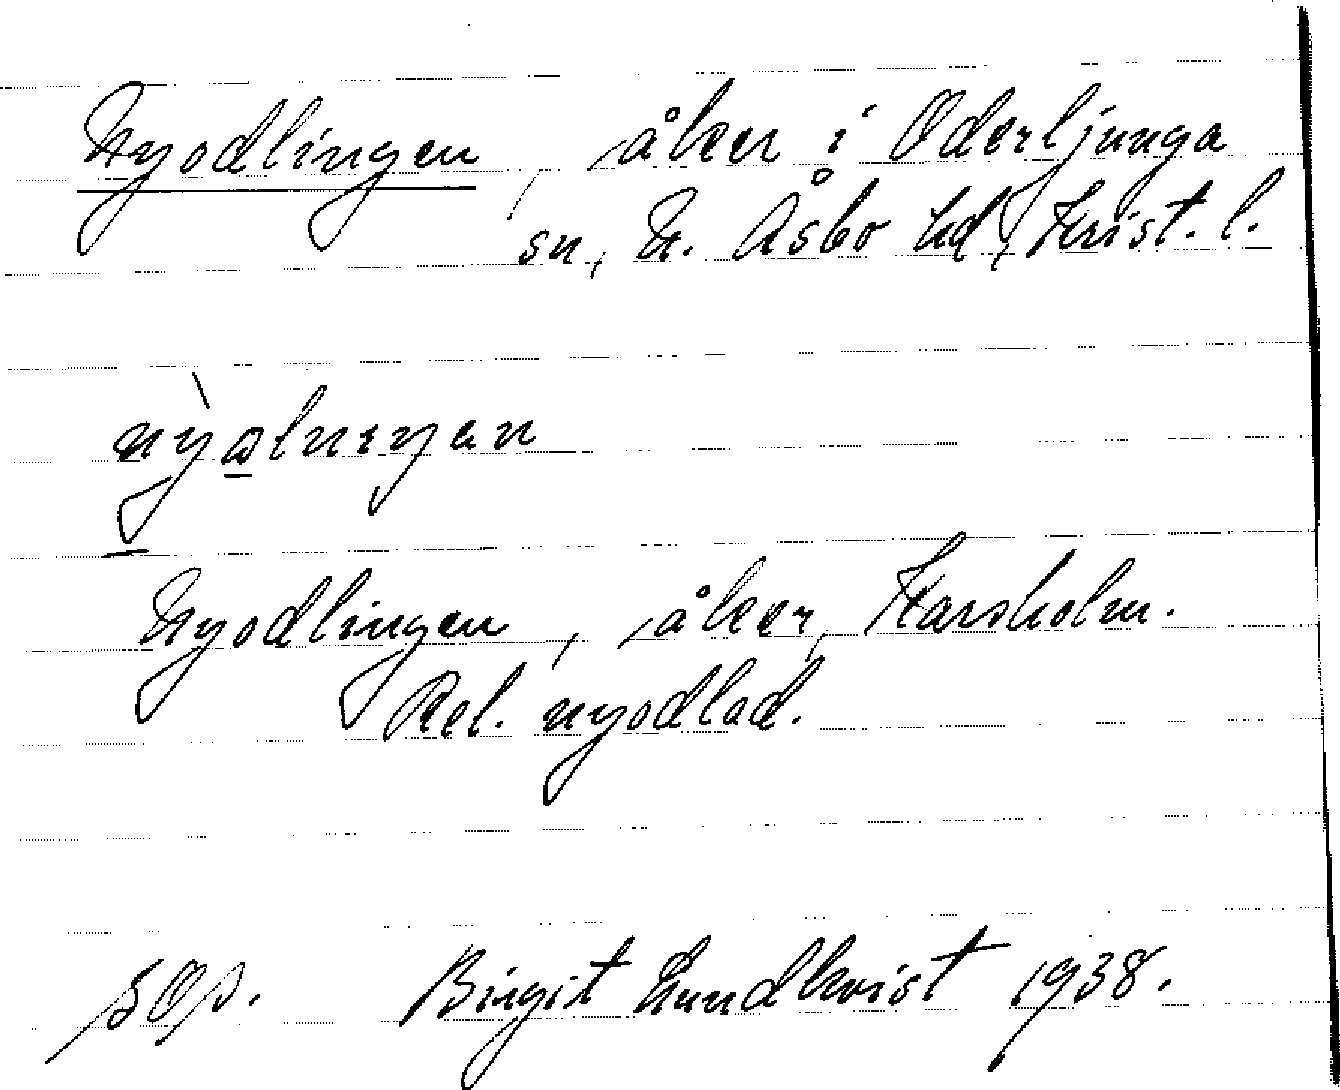 Nyodlingen, åker i Oderljunga
sn, N. Åsbo hd, Krist. l.
nỳa̲lnıŋan
Nyodlingen, åker, Karsholm.
Rel. nyodlad.
Birgit Lundkvist 1938.